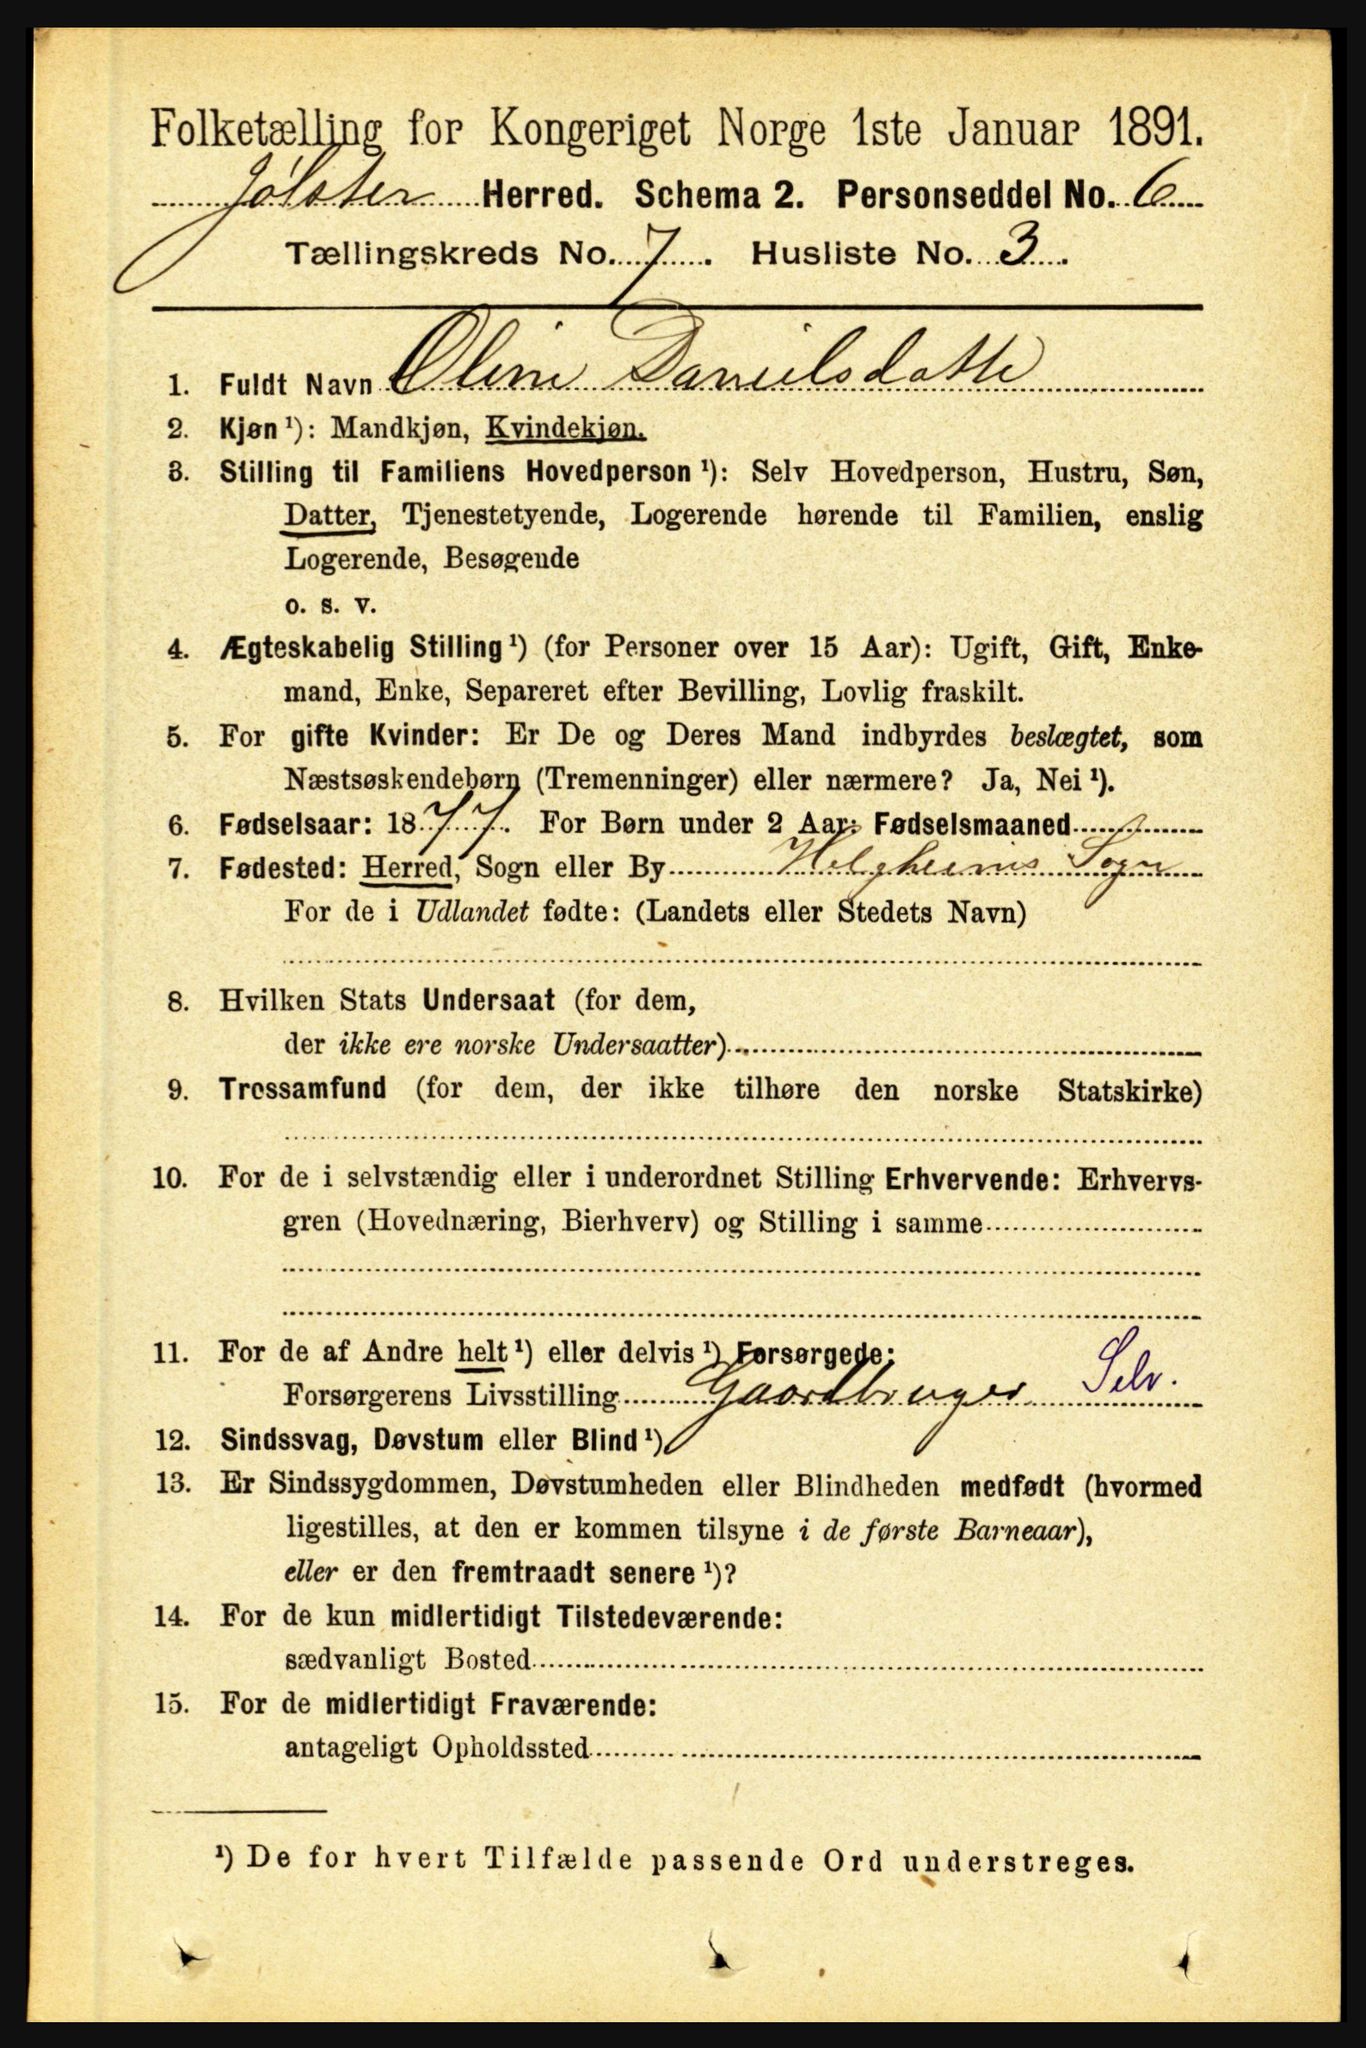 Folketælling for Kongeriget Norge 1ste Januar 1891.
Jølster Herred. Schema 2. Personseddel No. 6
Tællingskreds No. 7. Husliste No. 3.
1. Fuldt Navn Oline Danielsdatte
2. Kjøn ¹): Mandkjøn, Kvindekjøn.
3. Stilling til Familiens Hovedperson ¹): Selv Hovedperson, Hustru, Søn,
Datter, Tjenestetyende, Logerende hørende til Familien, enslig
Logerende, Besøgende
o. s. v.
4. Ægteskabelig Stilling ¹) (for Personer over 15 Aar): Ugift, Gift, Enke-
mand, Enke, Separeret efter Bevilling, Lovlig fraskilt.
5. For gifte Kvinder: Er De og Deres Mand indbyrdes beslægtet, som
Næstsøskendebørn (Tremenninger) eller nærmere? Ja, Nei ¹).
6. Fødselsaar: 1877. For Børn under 2 Aar: Fødselsmaaned
7. Fødested: Herred, Sogn eller By Helgheims Sogn
For de i Udlandet fødte: (Landets eller Stedets Navn)
8. Hvilken Stats Undersaat (for dem,
der ikke ere norske Undersaatter)
9. Trossamfund (for dem, der ikke tilhøre den norske Statskirke)
10. For de i selvstændig eller i underordnet Stilling Erhvervende: Erhvervs-
gren (Hovednæring, Bierhverv) og Stilling i samme
11. For de af Andre helt ¹) eller delvis ¹) Forsørgede:
Forsørgerens Livsstilling Gaardbruger Selv.
12. Sindssvag, Døvstum eller Blind ¹)
13. Er Sindssygdommen, Døvstumheden eller Blindheden medfødt (hvormed
ligestilles, at den er kommen tilsyne i de første Barneaar),
eller er den fremtraadt senere ¹)?
14. For de kun midlertidigt Tilstedeværende:
sædvanligt Bosted
15. For de midlertidigt Fraværende:
antageligt Opholdssted
¹) De for hvert Tilfælde passende Ord understreges.